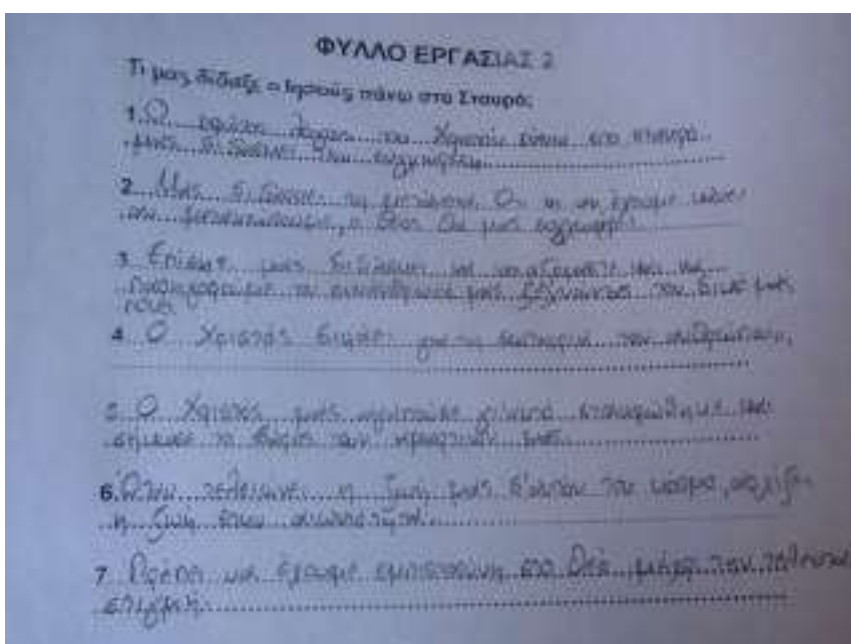 ΦΥΛΛΟ ΕΡΓΑΣΙΑΣ 2
Τι μας δίδαξε ο Ιησούς πάνω στο Σταυρό;
1. Ο πρώτος λόγος του Χριστού πάνω στο σταυρό
μας διδάσκει την συγχώρεση
2. Μας διδάσκει τη μετάνοια. Ότι κι αν έχουμε κάνει
αν μετανοήσουμε, ο Θεός θα μας συγχωρήσει
3. Επίσης μας διδάσκει να νοιαζόμαστε και να
τον συνάνθρωπό μας ξεχνώντας τον δικό μας
πόνο
4. Ο Χριστός διψάει για τη σωτηρία των ανθρώπων,
5. Ο Χριστός μας αγαπούσε γι'αυτό σταυρώθηκε και
σήκωσε το βάρος των αμαρτιών μας
6. Όταν τελειώνει η ζωή μας σ'αυτόν τον κόσμο, αρχίζει
η ζωή στην αιωνιότητα
7. Πρέπει να έχουμε εμπιστοσύνη στο Θεό μέχρι την τελευταία
στιγμή.